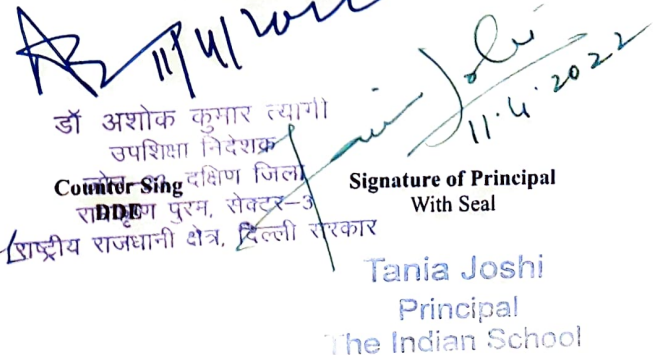 11/4/2022
डॉ अशोक कुमार त्यागी
उपशिक्षा निदेशक
दक्षिण जिला
Counter Sing
DDE
पुरम, सेक्टर-3
राष्ट्रीय राजधानी क्षेत्र, दिल्ली सरकार
Joshi
11.4.2022
Signature of Principal
With Seal
Tania Joshi
Principal
The Indian School